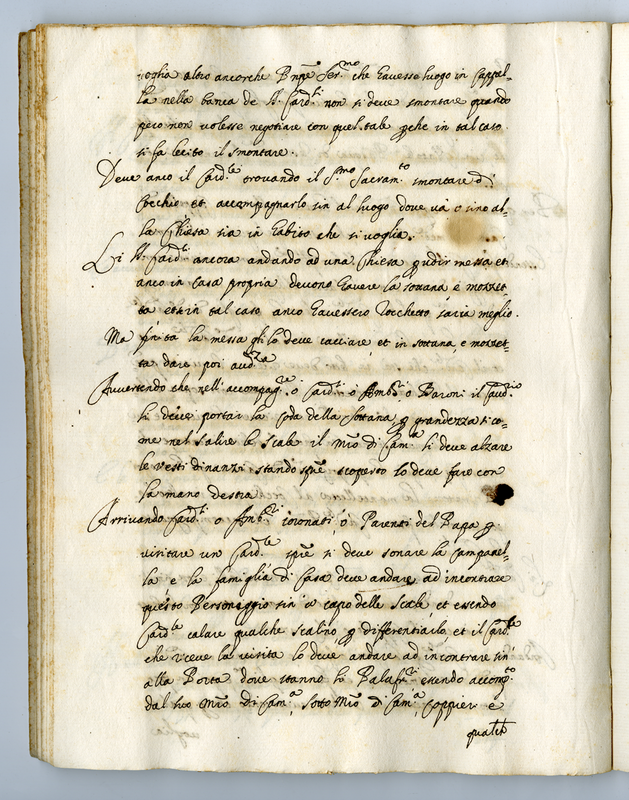 voglia altro ancorche Pnpe Ser.mo che havesse luogo in Cappel=
la nella banca de SS. Card.li non si deve smontare quando
pero non volesse negotiare con quel tale pche in tal caso
si fa lecito il smontare.
Deve anco il Card.le trovando il S.mo Sacram.to smontare di
Cocchio et accompagnarlo sin al luogo dove và o sino al=
la Chiesa sia in habito che si voglia.
Li SS. Card.li ancora andando ad una Chiesa p udir messa et
anco in casa propria devono havere la sottana, e mozzet=
ta et in tal caso anco havessero Rocchetto saria meglio.
Ma finita la messa gli lo deve cacciare et in sottana, e mozzet=
ta dare poi aud.za
Avvertendo che nell'accompag.re o Card.li o Amb.ri o Baroni il
li deve portar la coda della sottana p grandezza si co=
me nel salire le scale il mro di Cam.a li deve alzare
le vesti dinanzi stando spre scoperto lo deve fare con
la mano destra
Arrivando Card.li o Amb.ri coronati, ò Parenti del Papa p
visitare un Card.le spre si deve sonare la Campanel=
la e la famiglia di Casa deve andare ad incontrare
questo Personaggio sin' à capo delle scale, et essendo
Card.le calare qualche scalino p differentiarlo et il Card.le
che riceve la visita lo deve andare ad incontrare sin'
alla Porta dove stanno li Palafr.ri essendo accomp.to
dal suo Mro di Cam.a sotto Mro di Cam.a, Coppier e
qualch